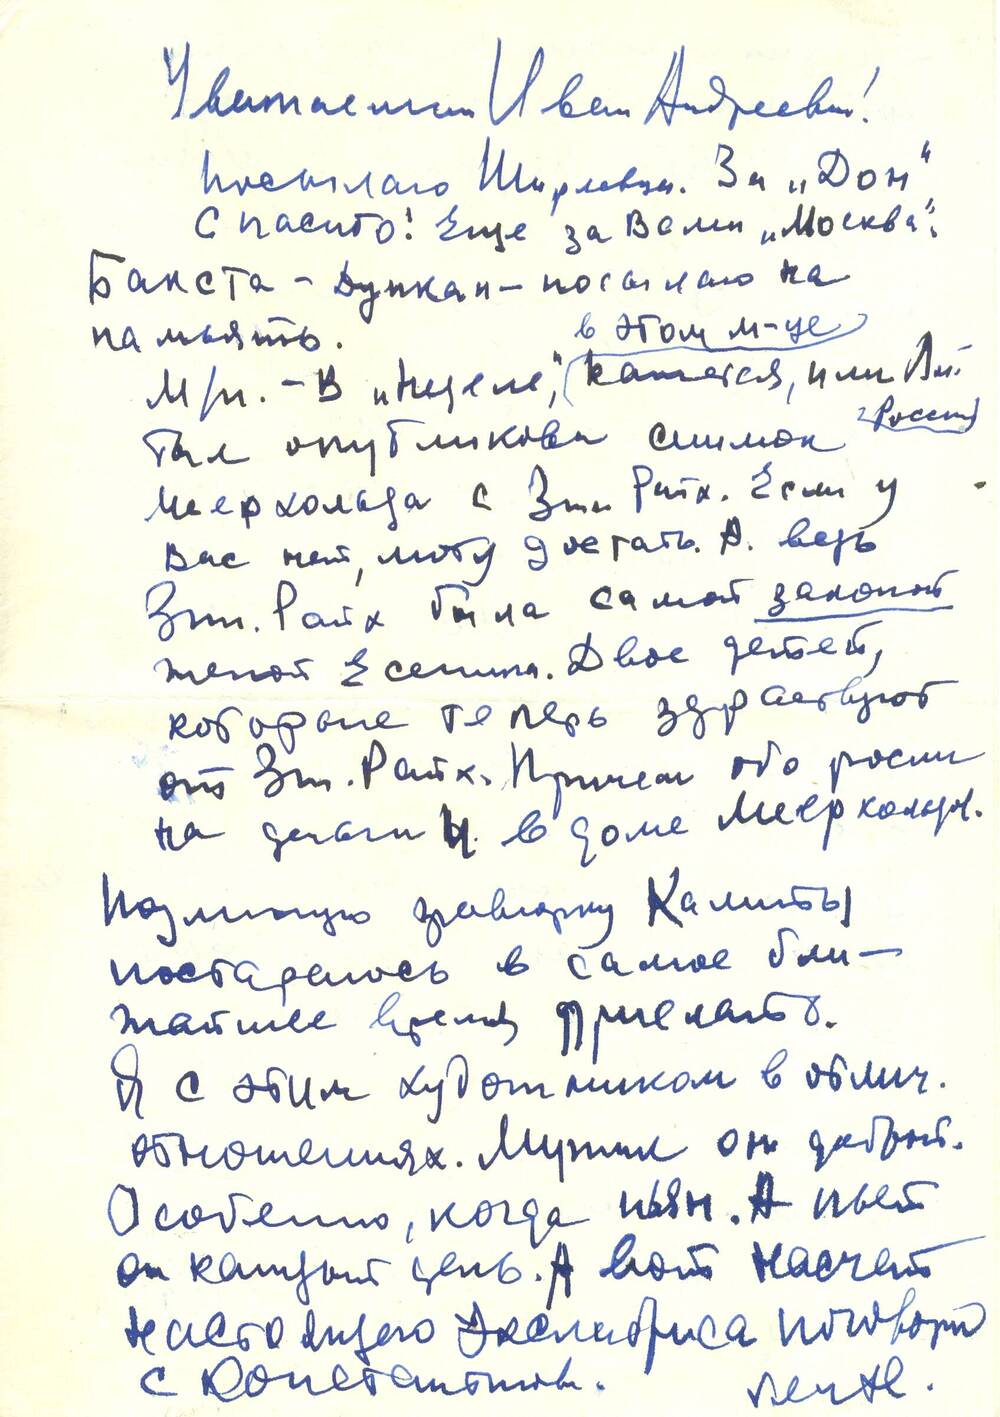 Уважаемый Иван Андреевич!
Посылаю Ширлевци. За „Дон“
Спасибо! Еще за Вами „Москва“.
Бакста – Дункан – посылаю на
память.
в этом м-це
М/п. – В „Неделе“, кажется, или Лит.
Россия
был опубликован снимок
Меерхольда с Зин. Райх. Если у
вас нет, могу достать. А ведь
Зин. Райх была самой законной
женой Есенина. Двое детей,
которые теперь здравствуют
от Зин. Райх. Причем оба росли
на деньги и в доме Меерхольда.
Подлинную гравюрку Калиты
постараюсь в самое бли–
жайшее время прислать.
Я с этим художником в отлич.
отношениях. Мужик он добрый.
Особенно, когда пьян. А пьет
он каждый день. А вот насчет
настоящего экслибриса поговорю
с Константинов.